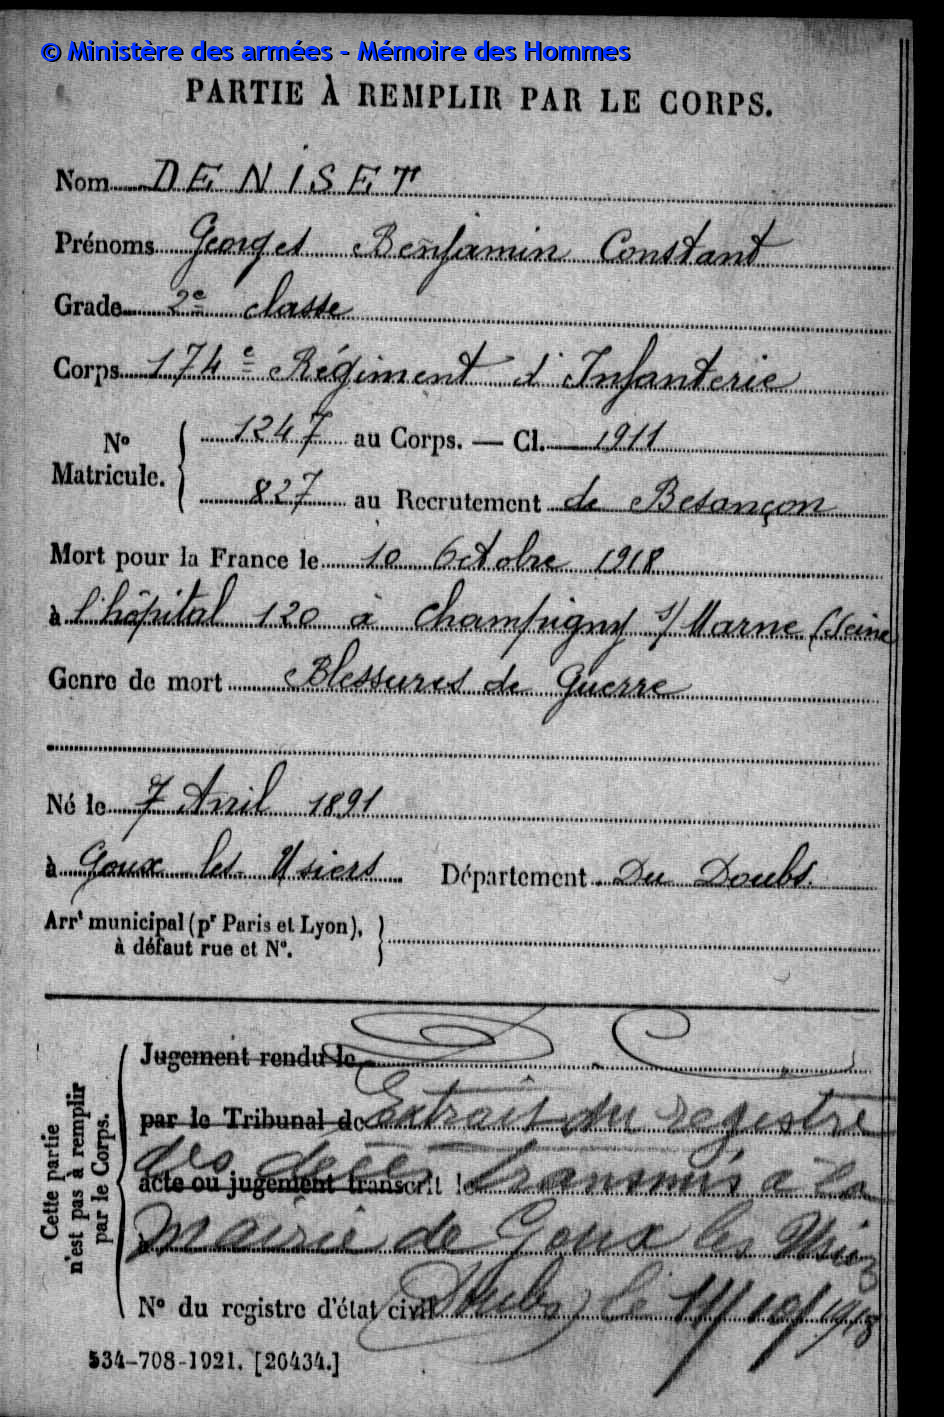 © Ministère des armées - Mémoire des Hommes
PARTIE À REMPLIR PAR LE CORPS.
Nom DENISET
Prénoms Georges Benjamin Constant
Grade 2e classe
Corps 174e Régiment d'Infanterie
N° Matricule. 1247 au Corps. — Cl. 1911
827 au Recrutement de Besançon
Mort pour la France le 10 Octobre 1918
à l'hôpital 120 à Champigny s/ Marne (Seine
Genre de mort Blessures de Guerre
Né le 7 Avril 1891
à Goux les Usiers Département Du Doubs.
Arrt municipal (pr Paris et Lyon),
à défaut rue et N°.
Cette partie
n'est pas à remplir
par le Corps.
Jugement rendu le
par le Tribunal de Extrait du registre
des décès transmis à la
acte ou jugement transcrit le
Mairie de Goux les Usiers
N° du registre d'état civil (Doubs) le 11/10/1918
534-708-1921. [26434.]